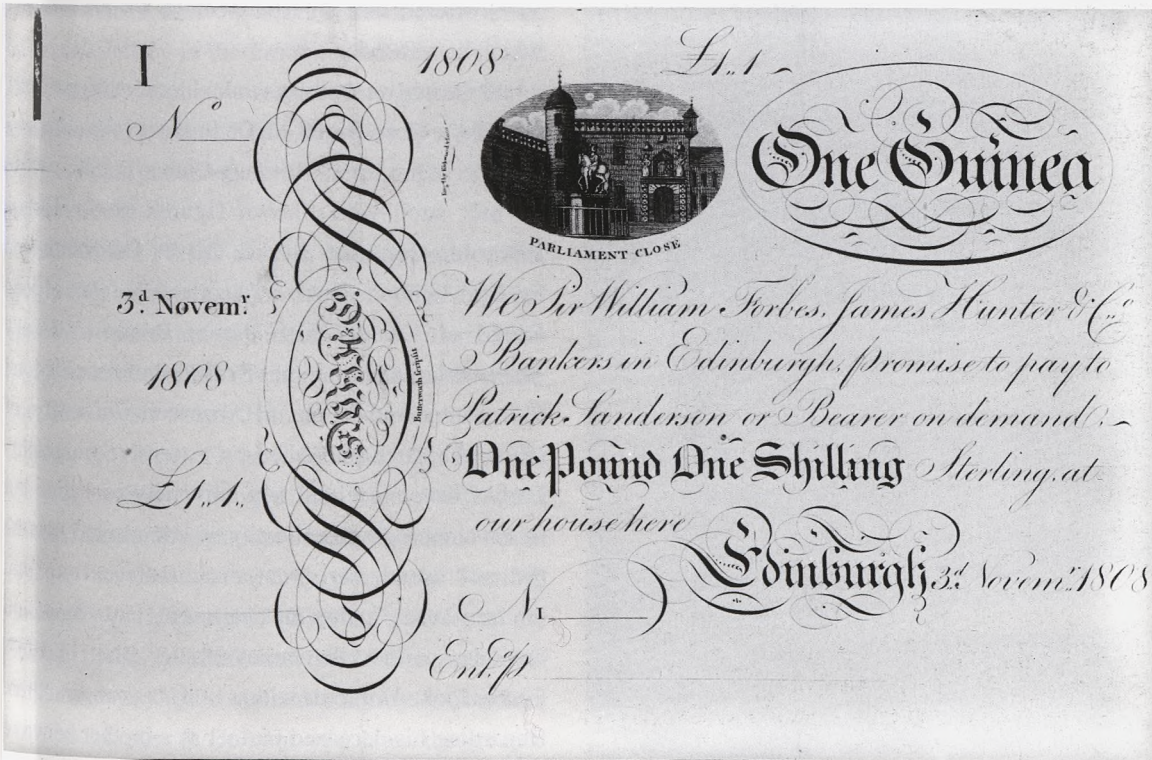 I
1808
£1,,1
No
PARLIAMENT CLOSE
One Guinea
3d. Novemr.
1808
£1,,1,,
Butterworth Sculpsit
We Sir William Forbes, James Hunter & Co.
Bankers in Edinburgh, promise to pay to
Patrick Sanderson or Bearer on demand
One Pound One Shilling Sterling, at
our house here
Edinburgh 3d. Novemr. 1808
No I
Entd. p